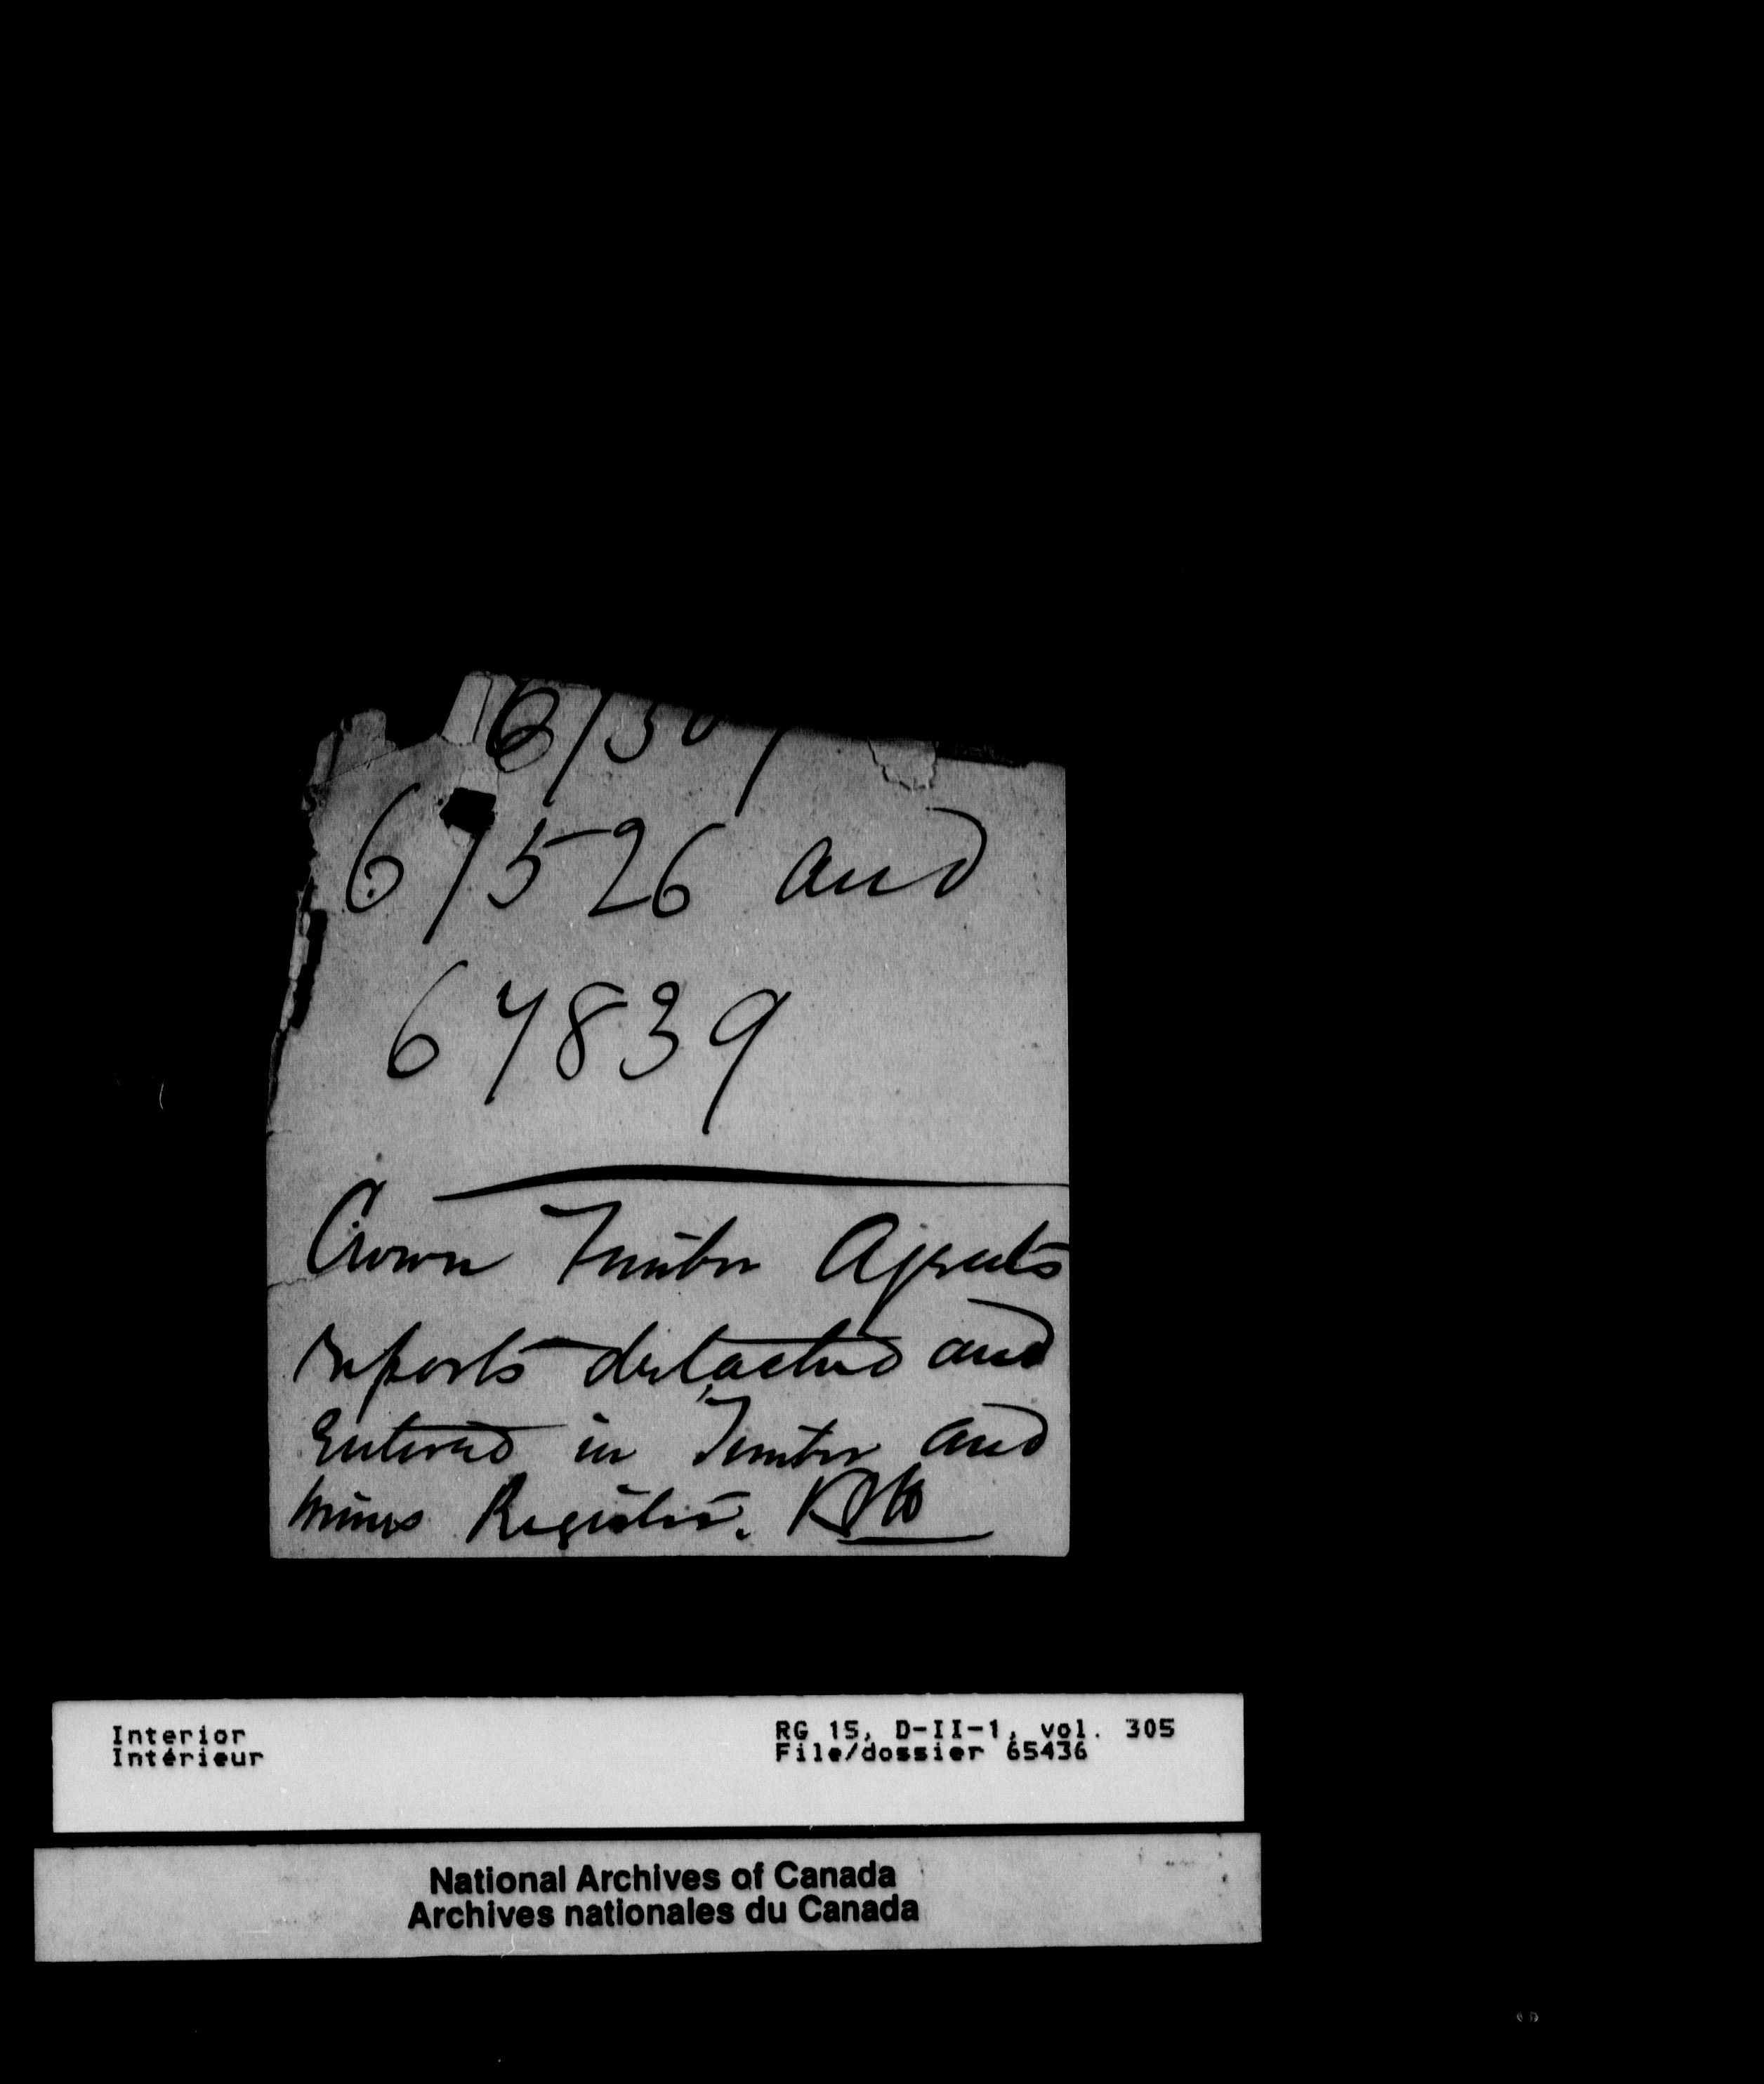 67526 and
67839
Crown Timber Agents
reports detached and
Entered in Timber and
Mines Register.
Interior
Intérieur
RG 15, D-II-1, vol. 305
File/dossier 65436
National Archives of Canada
Archives nationales du Canada